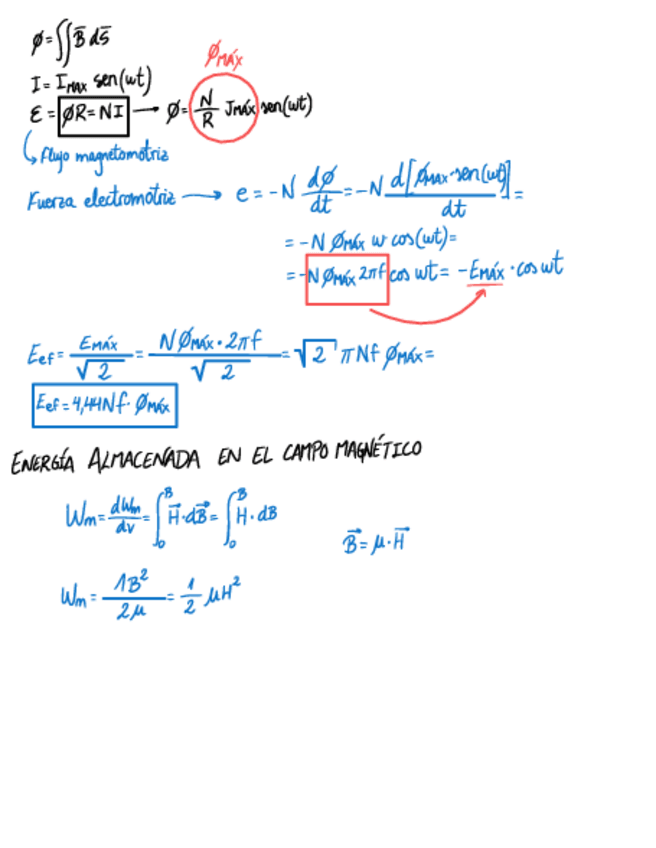 ϕ = ∬ B̄ ds̄
ϕMÁX
I = IMAX sen(wt)
Ɛ = ϕR = NI → ϕ = N/R JMÁX sen(wt)
↳ Flujo magnetomotriz
Fuerza electromotriz → e = -N dϕ/dt = -N d[ϕMAX·sen(wt)]/dt =
= -N ϕMÁX w cos(wt) =
= -N ϕMÁX 2πf cos wt = -EMÁX · cos wt
Eef = EMÁX/√2 = NϕMÁX·2πf/√2 = √2 πNf ϕMÁX =
Eef = 4,44Nf · ϕMÁX
ENERGÍA ALMACENADA EN EL CAMPO MAGNÉTICO
Wm = dWm/dv = ∫₀ᴮ H⃗·dB⃗ = ∫₀ᴮ H·dB
B⃗ = μ·H⃗
Wm = 1B²/2μ = 1/2 μH²